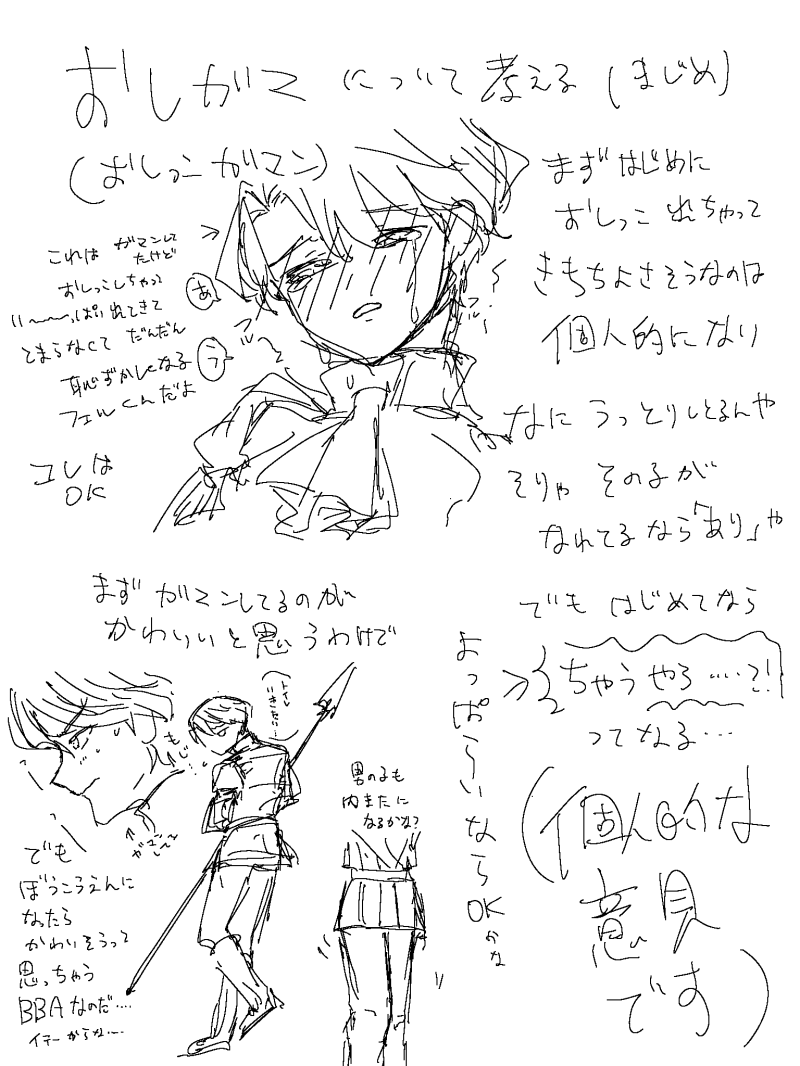 おしがマ について考える(まじめ)
(おしっこ ガマン)
まず はじめに
おしっこ れちゃって
きもちよさそうなのは
個人的になり
なに うっとりしとるんや
そりゃ その子が
なれてるなら「あり」や
でも はじめてなら
ちゃうやろ……?!
ってなる…
(個人的な
意見
です)
これは ガマンして
たけど
おしっこしちゃって
い〜〜っぱい れてきて
とまらなくて だんだん
恥ずかしくなる
フェルくんだよ
コレは
OK
あ
う
フル
まず ガマンしてるのが
かわいいと思うわけで
トイレ
いきたい…
もじ
ガマン
し〜〜
でも
ぼうこうえんに
なったら
かわいそうって
思っちゃう
BBAなのだ….
イテーからな….
男の子も
内またに
なるかな?
よっぱらいならOKかな